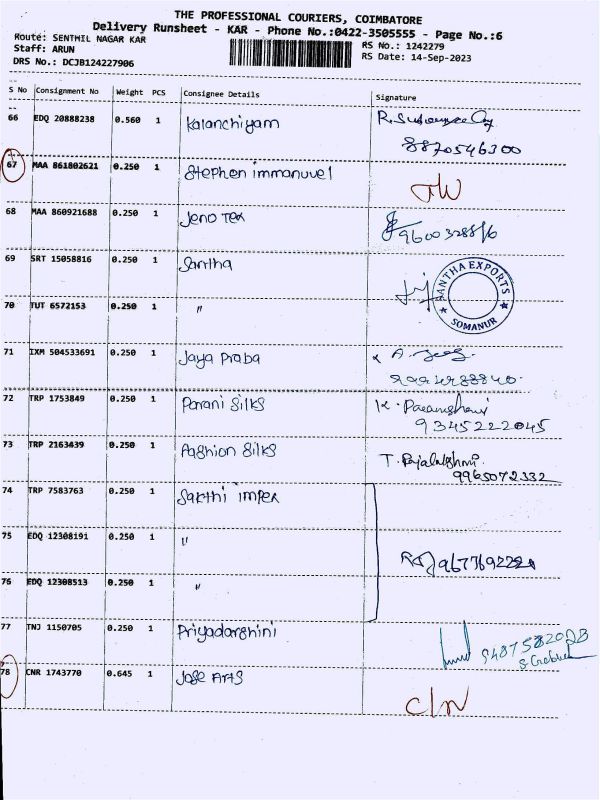 THE PROFESSIONAL COURIERS, COIMBATORE
Delivery Runsheet - KAR - Phone No.:0422-3505555 - Page No.:6
Route: SENTHIL NAGAR KAR
RS No.: 1242279
Staff: ARUN
RS Date: 14-Sep-2023
DRS No.: DCJB124227906
S No Consignment No Weight PCS Consignee Details Signature
66 EDQ 20888238 0.560 1 Kalanchiyam
8870546300
67 MAA 861802621 0.250 1 Stephen immanuvel
68 MAA 860921688 0.250 1 Jeno Tex
69 SRT 15058816 0.250 1 Santha
SANTHA EXPORTS
SOMANUR
70 TUT 6572153 0.250 1 "
71 IXM 504533691 0.250 1 Jaya Praba
72 TRP 1753849 0.250 1 Parani Silks
9345222045
73 TRP 2163439 0.250 1 Fashion Silks
T. Rajalakshmi
9965072332
74 TRP 7583763 0.250 1 Sakthi impex
75 EDQ 12308191 0.250 1 "
76 EDQ 12308513 0.250 1 "
77 TNJ 1150705 0.250 1 Priyadarshini
78 CNR 1743770 0.645 1 Jose Arts